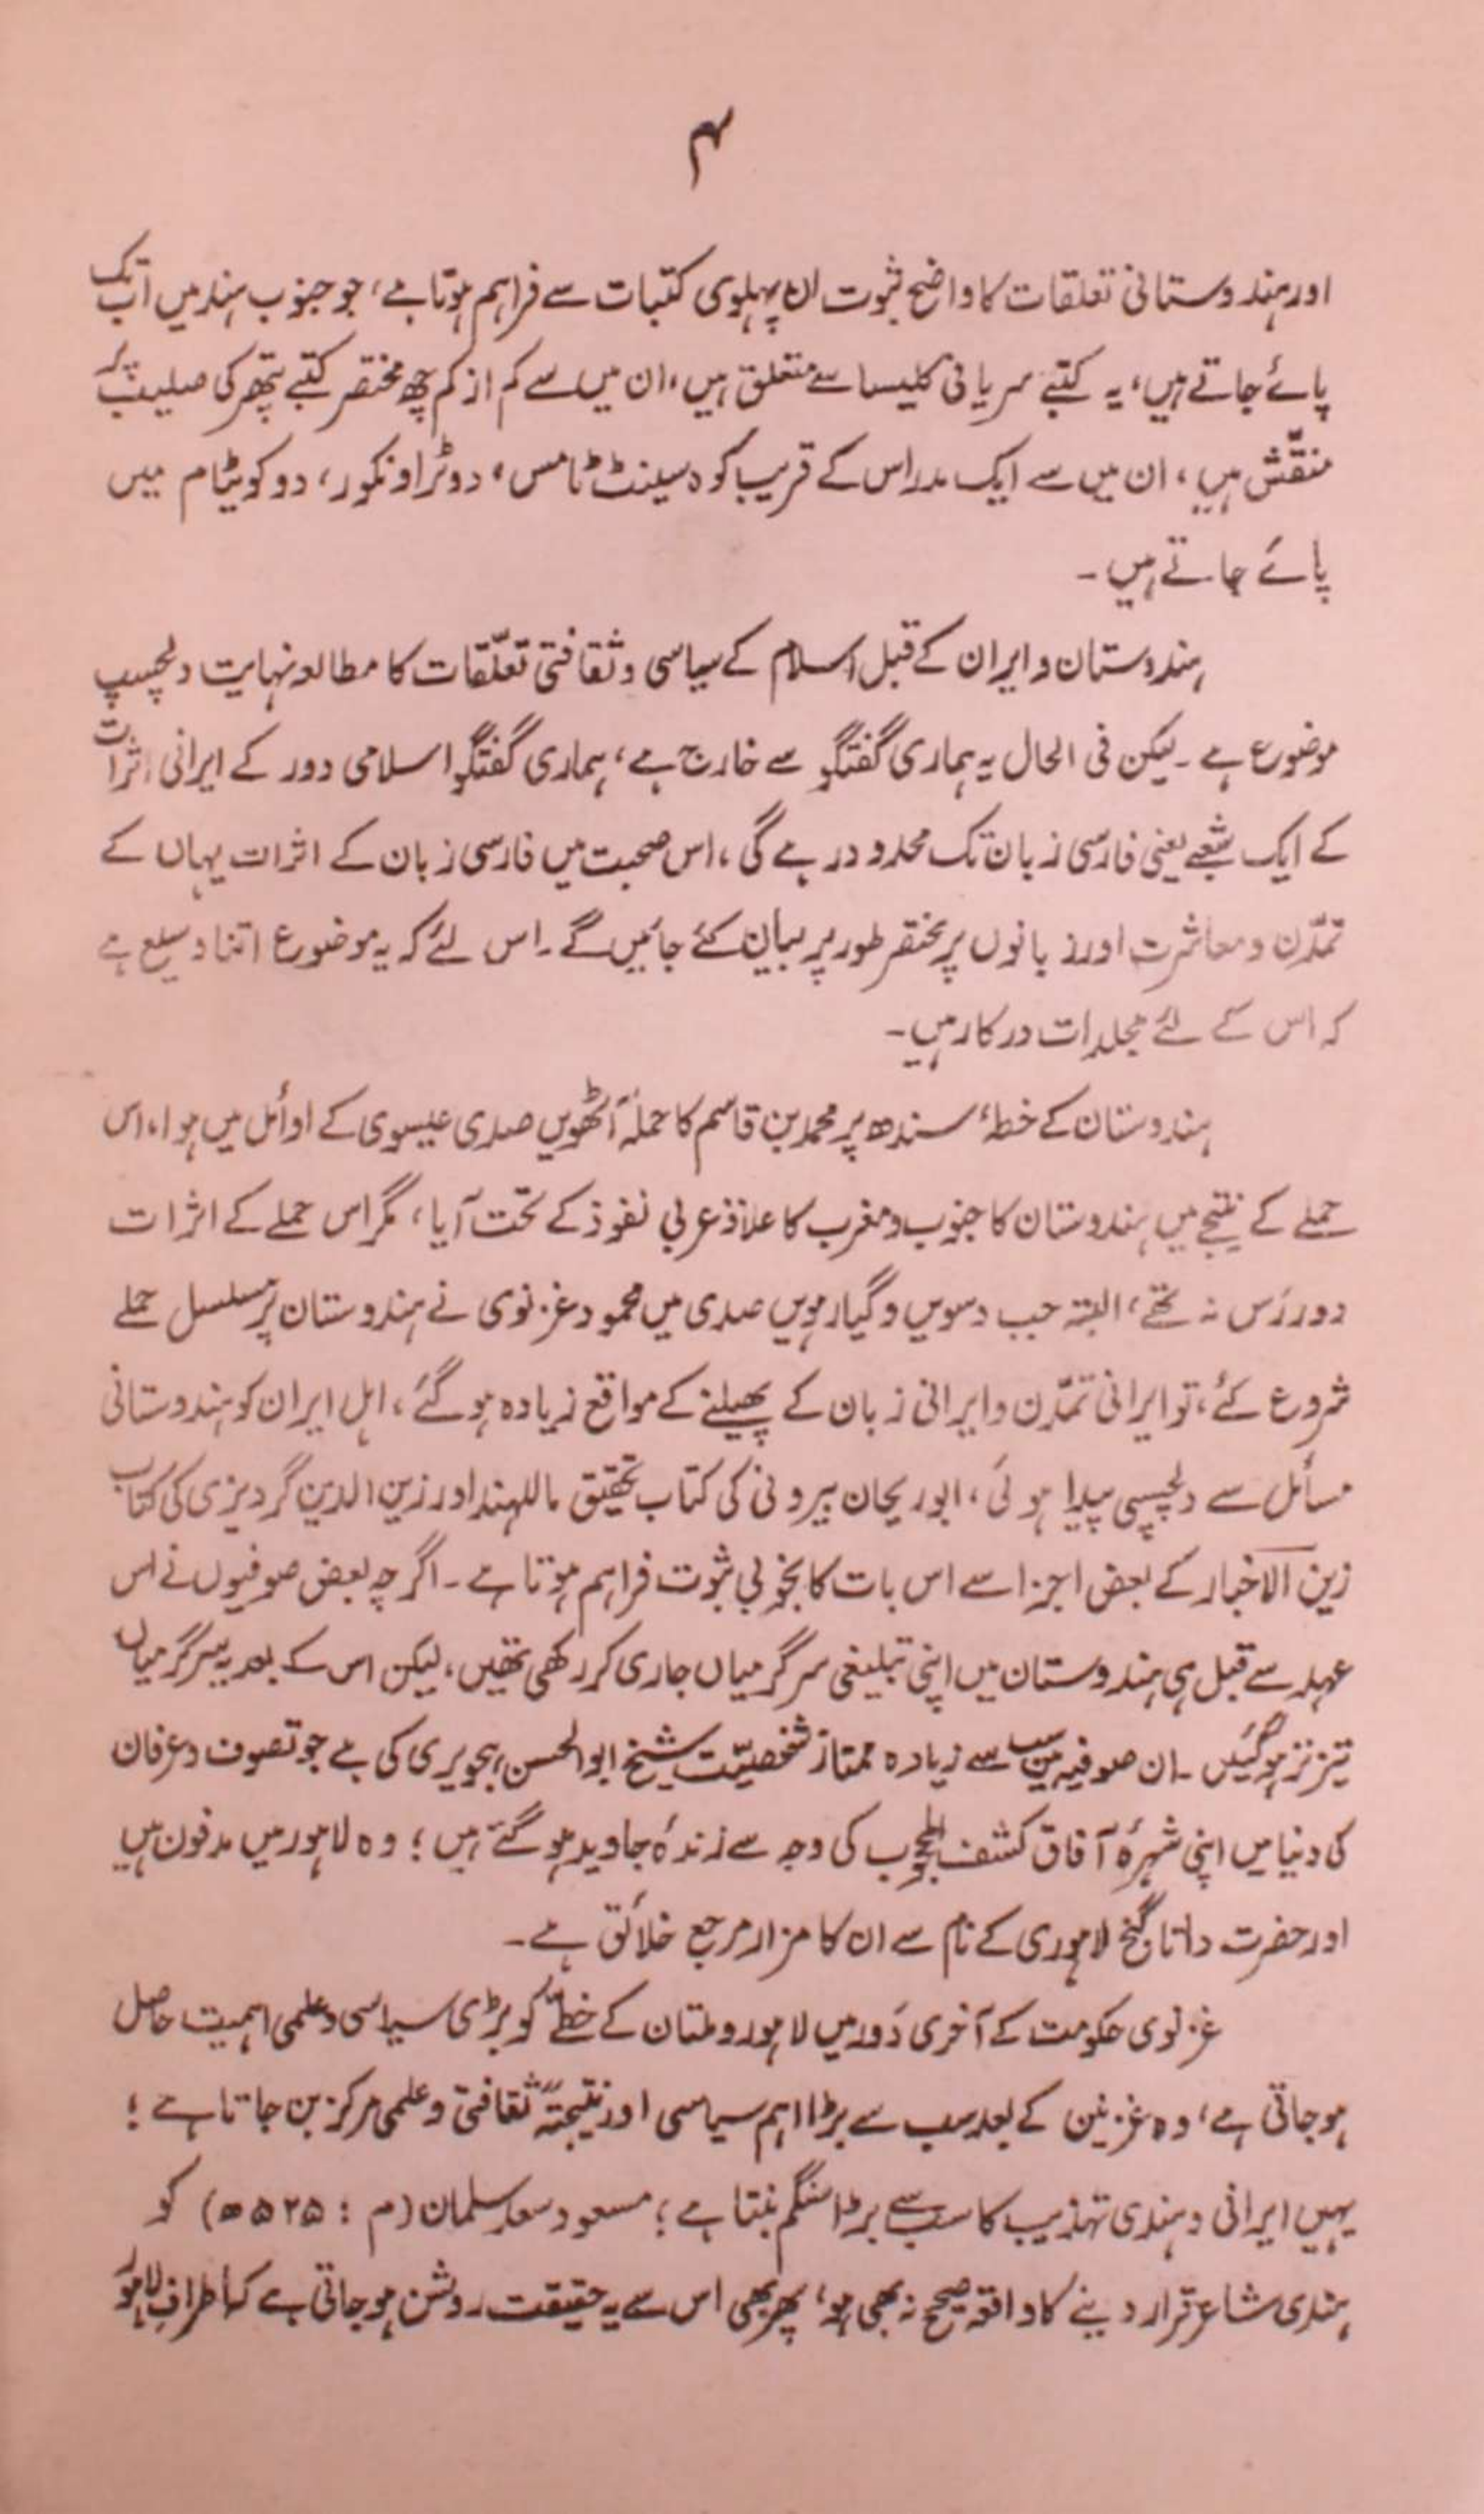 ۴
اور ہندوستانی تعلقات کا واضح ثبوت ان پہلوی کتبات سے فراہم ہوتا ہے، جو جنوب ہند میں اب تک
پائے جاتے ہیں، یہ کتبے سریانی کلیسا سے متعلق ہیں، ان میں سے کم از کم چھ مختصر کتبے پتھر کی صلیب پر
منقّش ہیں، ان میں سے ایک مدراس کے قریب کوہ سینٹ ٹامس، دو ٹراونکور، دو کوٹیام میں
پائے جاتے ہیں۔
ہندوستان و ایران کے قبل اسلام کے سیاسی و ثقافتی تعلّقات کا مطالعہ نہایت دلچسپ
موضوع ہے۔ لیکن فی الحال یہ ہماری گفتگو سے خارج ہے، ہماری گفتگو اسلامی دور کے ایرانی اثرات
کے ایک شعبے یعنی فارسی زبان تک محدود رہے گی، اس صحبت میں فارسی زبان کے اثرات یہاں کے
تمدّن و معاشرت اور زبانوں پر مختصر طور پر بیان کئے جائیں گے۔ اس لئے کہ یہ موضوع اتنا وسیع ہے
کہ اس کے لئے مجلدات درکار ہیں۔
ہندوستان کے خطۂ سندھ پر محمد بن قاسم کا حملہ آٹھویں صدی عیسوی کے اوائل میں ہوا، اس
حملے کے نتیجے میں ہندوستان کا جنوب و مغرب کا علاقہ عربی نفوذ کے تحت آیا، مگر اس حملے کے اثرات
دوررَس نہ تھے، البتہ جب دسویں و گیارہویں صدی میں محمود غزنوی نے ہندوستان پر مسلسل حملے
شروع کئے، تو ایرانی تمدّن و ایرانی زبان کے پھیلنے کے مواقع زیادہ ہو گئے، اہل ایران کو ہندوستانی
مسائل سے دلچسپی پیدا ہوئی، ابوریحان بیرونی کی کتاب تحقیق ماللہند اور زین الدین گردیزی کی کتاب
زین الاخبار کے بعض اجزا سے اس بات کا بخوبی ثبوت فراہم ہوتا ہے۔ اگرچہ بعض صوفیوں نے اس
عہد سے قبل ہی ہندوستان میں اپنی تبلیغی سرگرمیاں جاری کر رکھی تھیں، لیکن اس کے بعد یہ سرگرمیاں
تیز تر ہو گئیں۔ ان صوفیہ میں سب سے زیادہ ممتاز شخصیّت شیخ ابوالحسن ہجویری کی ہے جو تصوف و عرفان
کی دنیا میں اپنی شہرۂ آفاق کشف المحجوب کی وجہ سے زندۂ جاوید ہو گئے ہیں؛ وہ لاہور میں مدفون ہیں
اور حضرت داتا گنج لاہوری کے نام سے ان کا مزار مرجع خلائق ہے۔
غزنوی حکومت کے آخری دَور میں لاہور و ملتان کے خطّے کو بڑی سیاسی و علمی اہمیت حاصل
ہو جاتی ہے، وہ غزنین کے بعد سب سے بڑا اہم سیاسی اور نتیجتہً ثقافتی و علمی مرکز بن جاتا ہے؛
یہیں ایرانی و ہندی تہذیب کا سب سے بڑا سنگم بنتا ہے؛ مسعود سعد سلمان (م : ۵۲۵ھ) کو
ہندی شاعر قرار دینے کا واقعہ صحیح نہ بھی ہو، پھر بھی اس سے یہ حقیقت روشن ہو جاتی ہے کہ اطرافِ لاہور